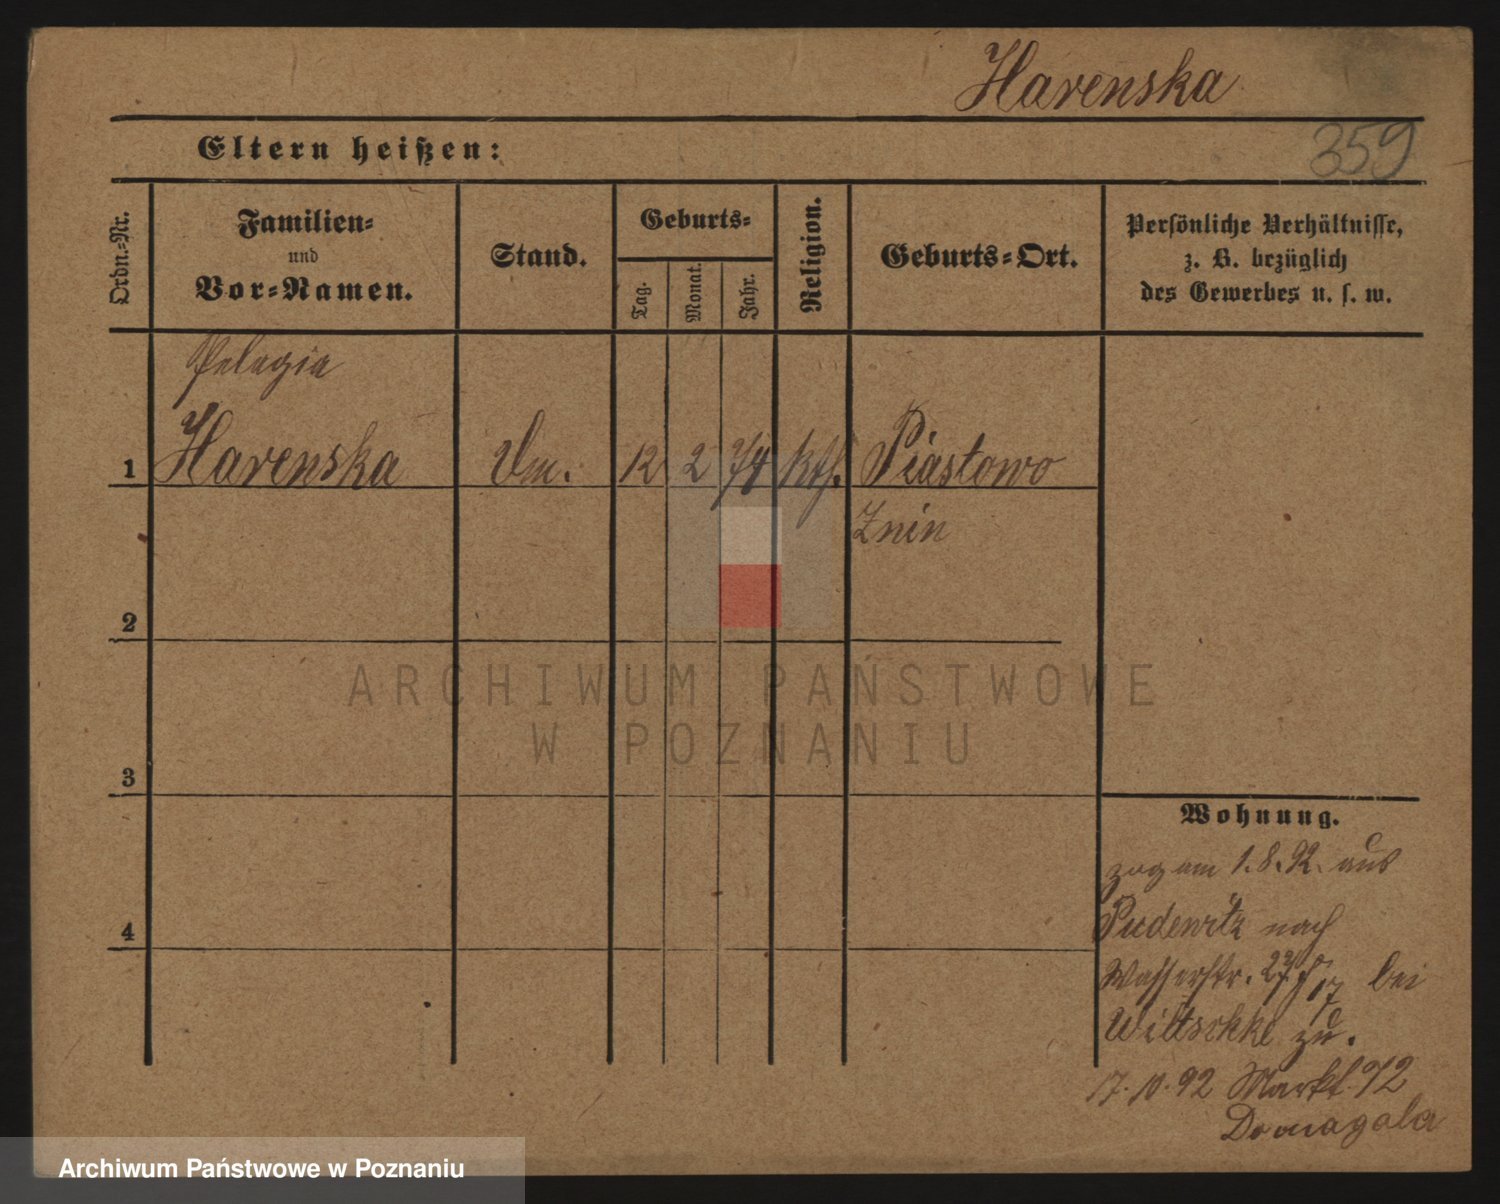 Harenska
359
Eltern heißen:
Ordn.-Nr.
Familien-
und
Vor-Namen.
Stand.
Geburts-
Tag.
Monat.
Jahr.
Religion.
Geburts-Ort.
Persönliche Verhältnisse,
z. B. bezüglich
des Gewerbes u. s. w.
Pelagia
1 Harenska Dm. 12 2 74 kth. Piastowo
Znin
2
ARCHIWUM PAŃSTWOWE
W POZNANIU
3
Wohnung.
zog am 1.8.92. aus
Pudewitz nach
4
Wasserstr. bei
Wiltschke zu.
17.10.92 Markt
Domagala
Archiwum Państwowe w Poznaniu